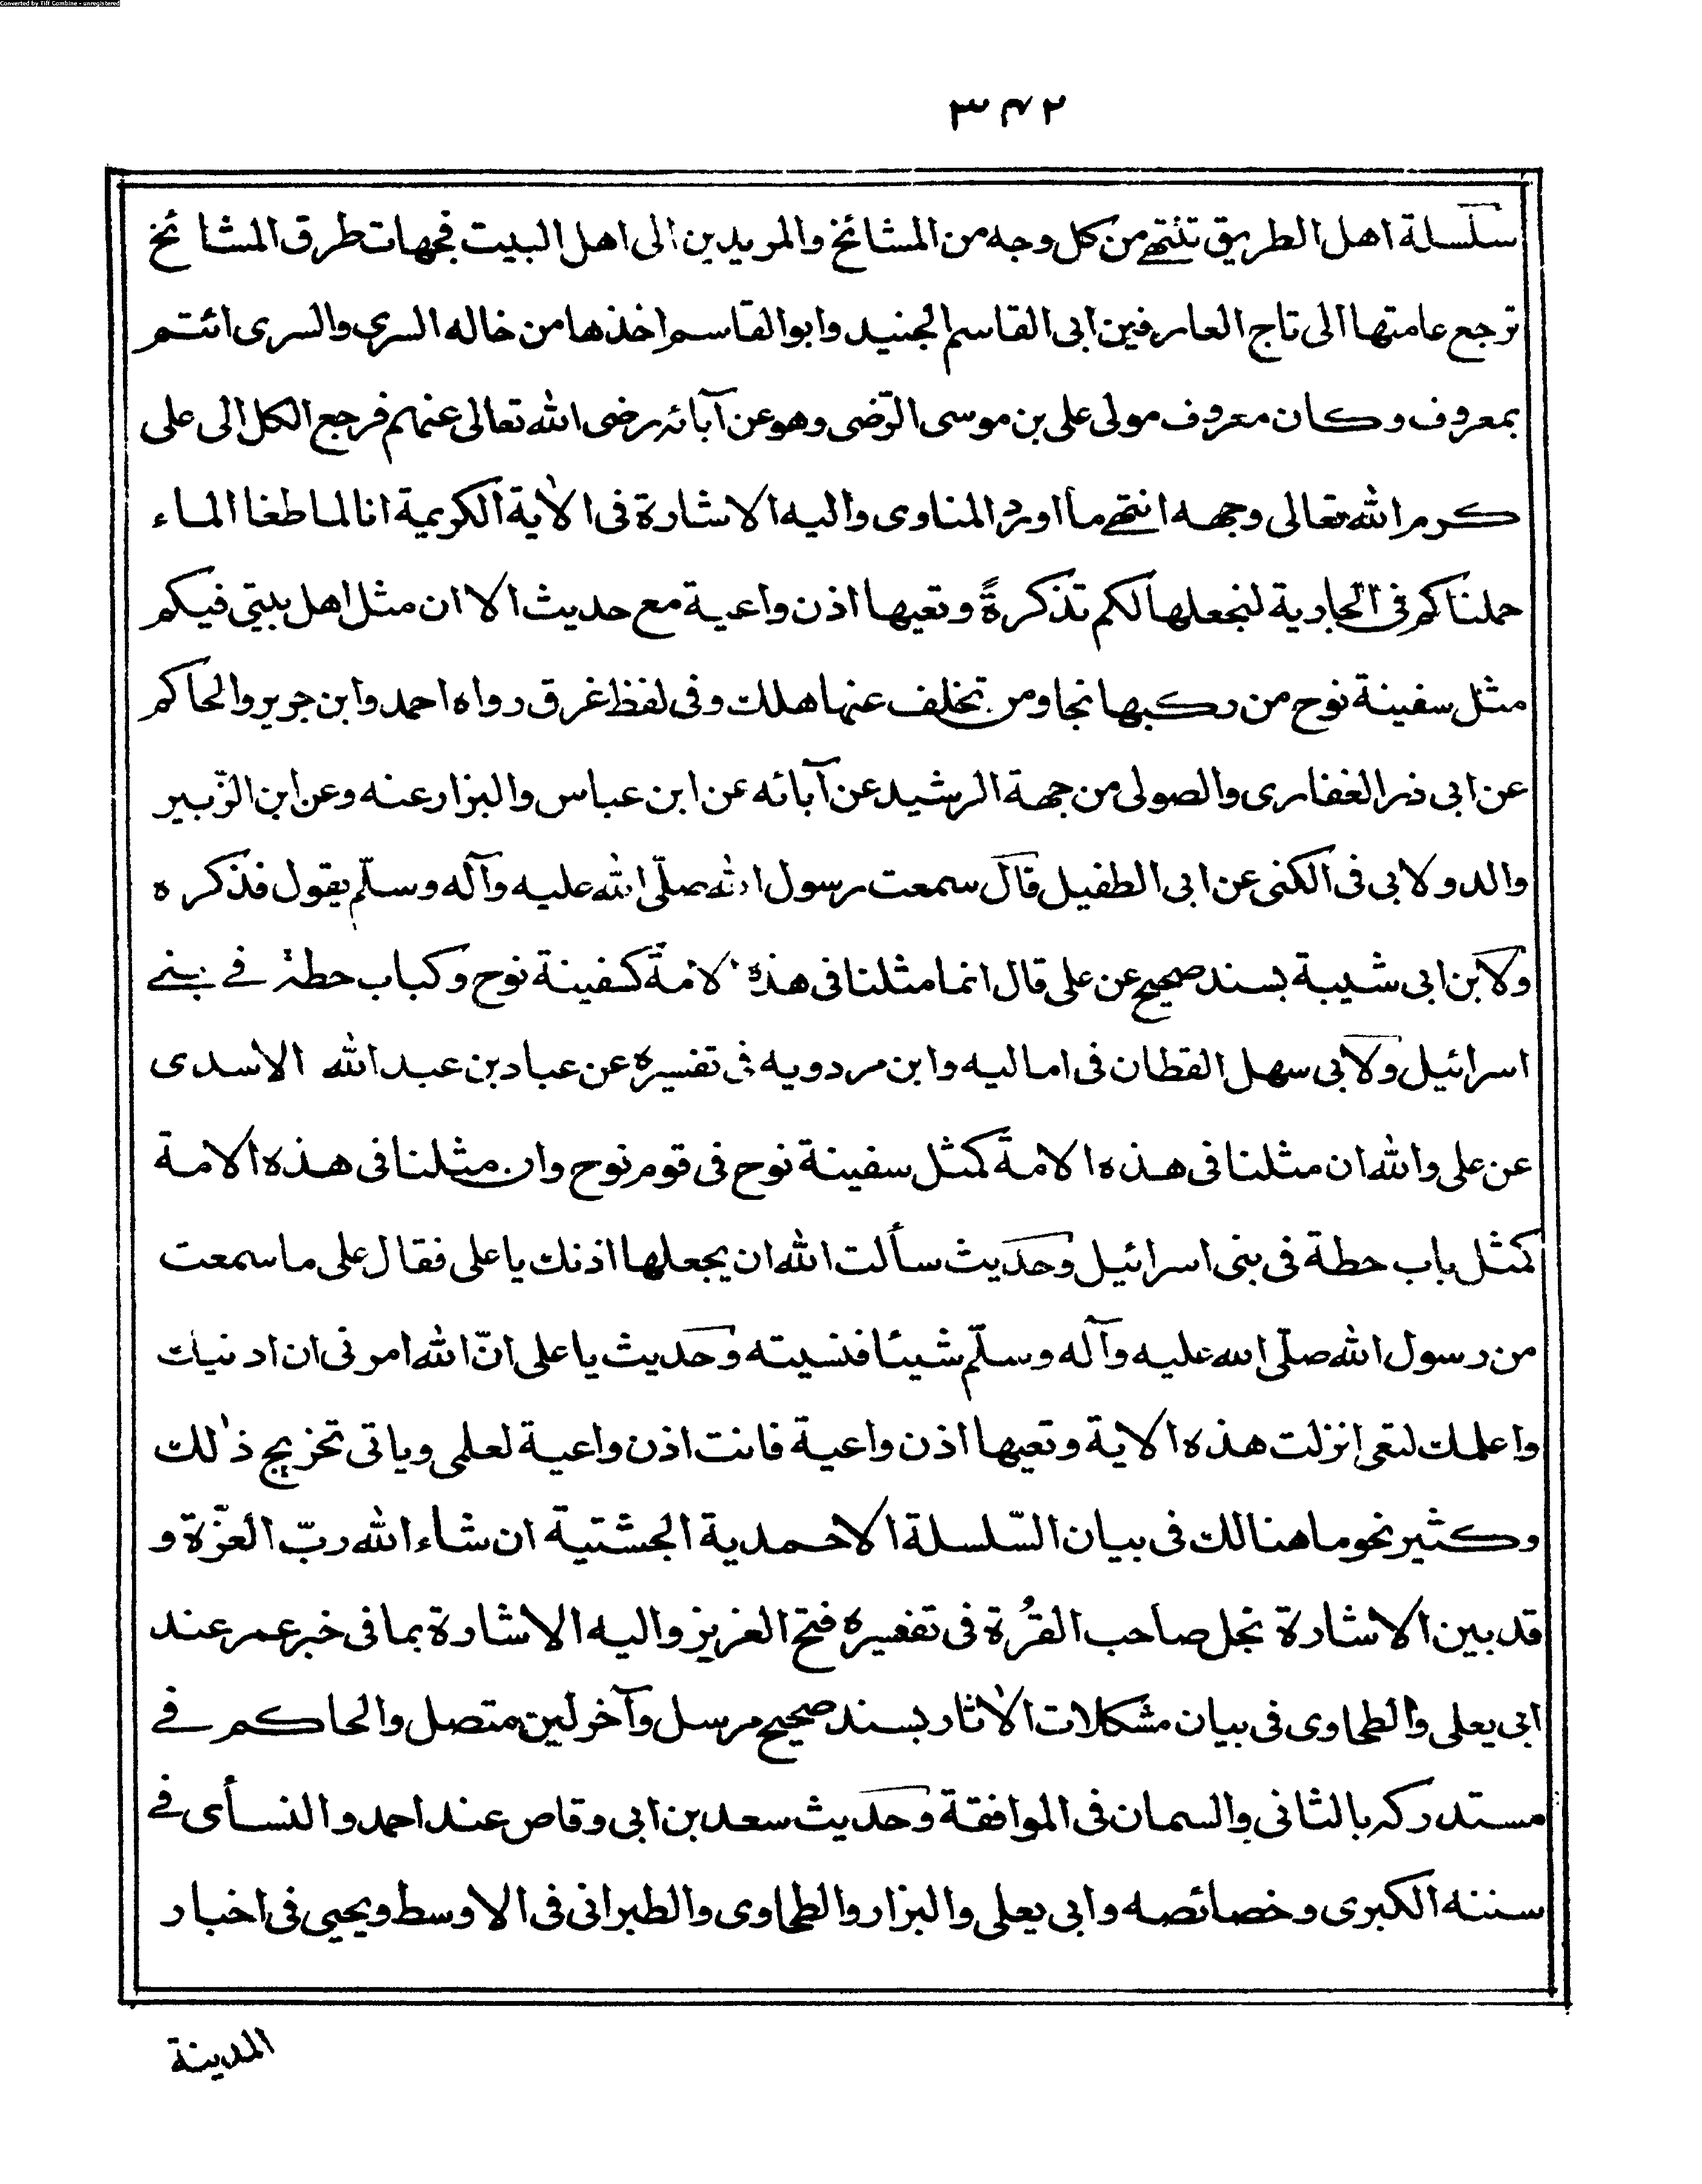 Converted by Tiff Combine - unregistered
۳۴۲
سلسلة اهل الطريق تنتهے من كل وجه من المشائخ والمريدين الى اهل البيت فجهات طرق المشائخ
ترجع عامتها الى تاج العارفين ابى القاسم الجنيد وابو القاسم اخذها من خاله السرى والسرى ائتم
بمعروف وكان معروف مولى على بن موسى الرّضى وهو عن آبائه رضى الله تعالى عنهم فرجع الكل الى على
كرم الله تعالى وجهه انتهے ما اورد المناوى واليه الاشارة فى الاٰية الكريمة انا لما طغا الماء
حملناكم فى الجارية لنجعلها لكم تذكرةً وتعيها اذن واعية مع حديث الا ان مثل اهل بيتى فيكم
مثل سفينة نوح من ركبها نجا ومن تخلف عنها هلك وفى لفظ غرق رواه احمد وابن جرير والحاكم
عن ابى ذر الغفارى والصولى من جهة الرشيد عن آبائه عن ابن عباس والبزار عنه وعن ابن الزّبير
والدولابى فى الكنى عن ابى الطفيل قال سمعت رسول الله صلّى الله عليه وآله وسلّم يقول فذكره
ولابن ابى شيبة بسند صحيح عن على قال انما مثلنا فى هذه الامة كسفينة نوح وكباب حطة فے بنے
اسرائيل ولابى سهل القطان فى اماليه وابن مردويه فى تفسيره عن عباد بن عبد الله الاسدى
عن على والله ان مثلنا فى هذه الامة كمثل سفينة نوح فى قوم نوح وان مثلنا فى هذه الامة
كمثل باب حطة فى بنى اسرائيل وحديث سألت الله ان يجعلها اذنك يا على فقال على ما سمعت
من رسول الله صلّى الله عليه وآله وسلّم شيئا فنسيته وحديث يا على انّ الله امرنى ان ادنيك
واعلمك لتعى انزلت هذه الاية وتعيها اذن واعية فانت اذن واعية لعلمى وياتى تخريج ذٰلك
وكثير نحو ما هنالك فى بيان السّلسلة الاحمدية الجشتية ان شاء الله ربّ العزّة و
قد بين الاشارة نجل صاحب القُرة فى تفسيره فتح العزيز واليه الاشارة بما فى خبر عمر عند
ابى يعلى والطحاوى فى بيان مشكلات الاٰثار بسند صحيح مرسل وآخر لين متصل والحاكم فے
مستدركه بالثانى والسمان فى الموافقة وحديث سعد بن ابى وقاص عند احمد والنسأى فے
سننه الكبرى وخصائصه وابى يعلى والبزار والطحاوى والطبرانى فى الاوسط ويحيى فى اخبار
المدينة